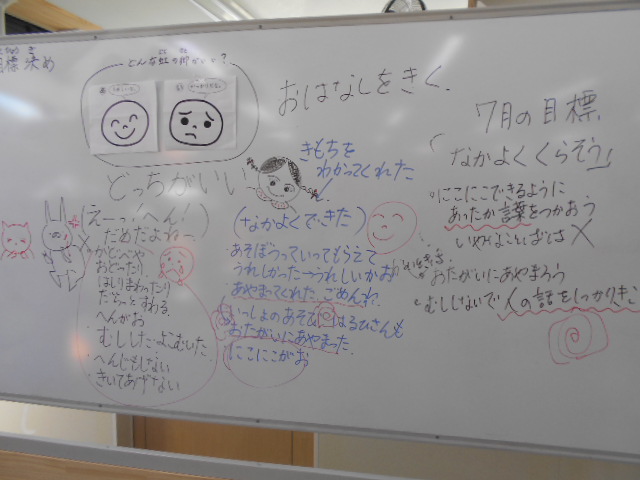 目標決め
どんな虹の街がいいと?
おはなしをきく.
どっちがいい
(えーっ!へん!)
だめだよねー
かじべや
おどったり.
はしりまわったり
だらっとすわる.
へんがお
むししたよこむいた.
へんじもしない
きいてあげない
きもちを
わかってくれた
(なかよくできた)
あそぼうっていってもらえて
うれしかった→うれしいかお
あやまってくれたごめんね.
いっしょのあそび
はるひさんも
おたがいにあやまった.
にこにこがお
7月の目標
「なかよくくらそう」
にこにこできるように
あったか言葉をつかおう
いやなことばは×
おたがいにあやまろう
むししないで人の話をしっかりきく